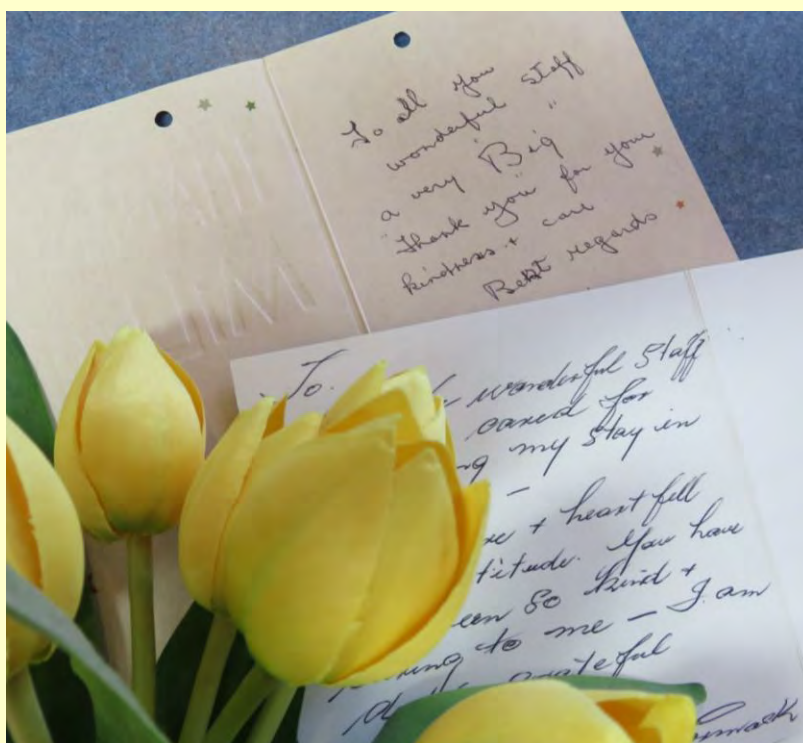 To all you
wonderful staff
a very "Big"
"Thank you" for your
kindness + care
Best regards
To.
wonderful Staff
cared for
my stay in
-
+ heart fell
You have
so kind +
to me - I am
grateful